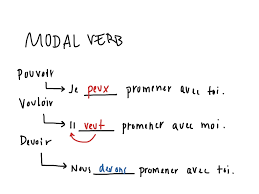 MODAL VERB
Pouvoir
Je peux promener avec toi.
Vouloir
Il veut promener avec moi.
Devoir
Nous devons promener avec toi.